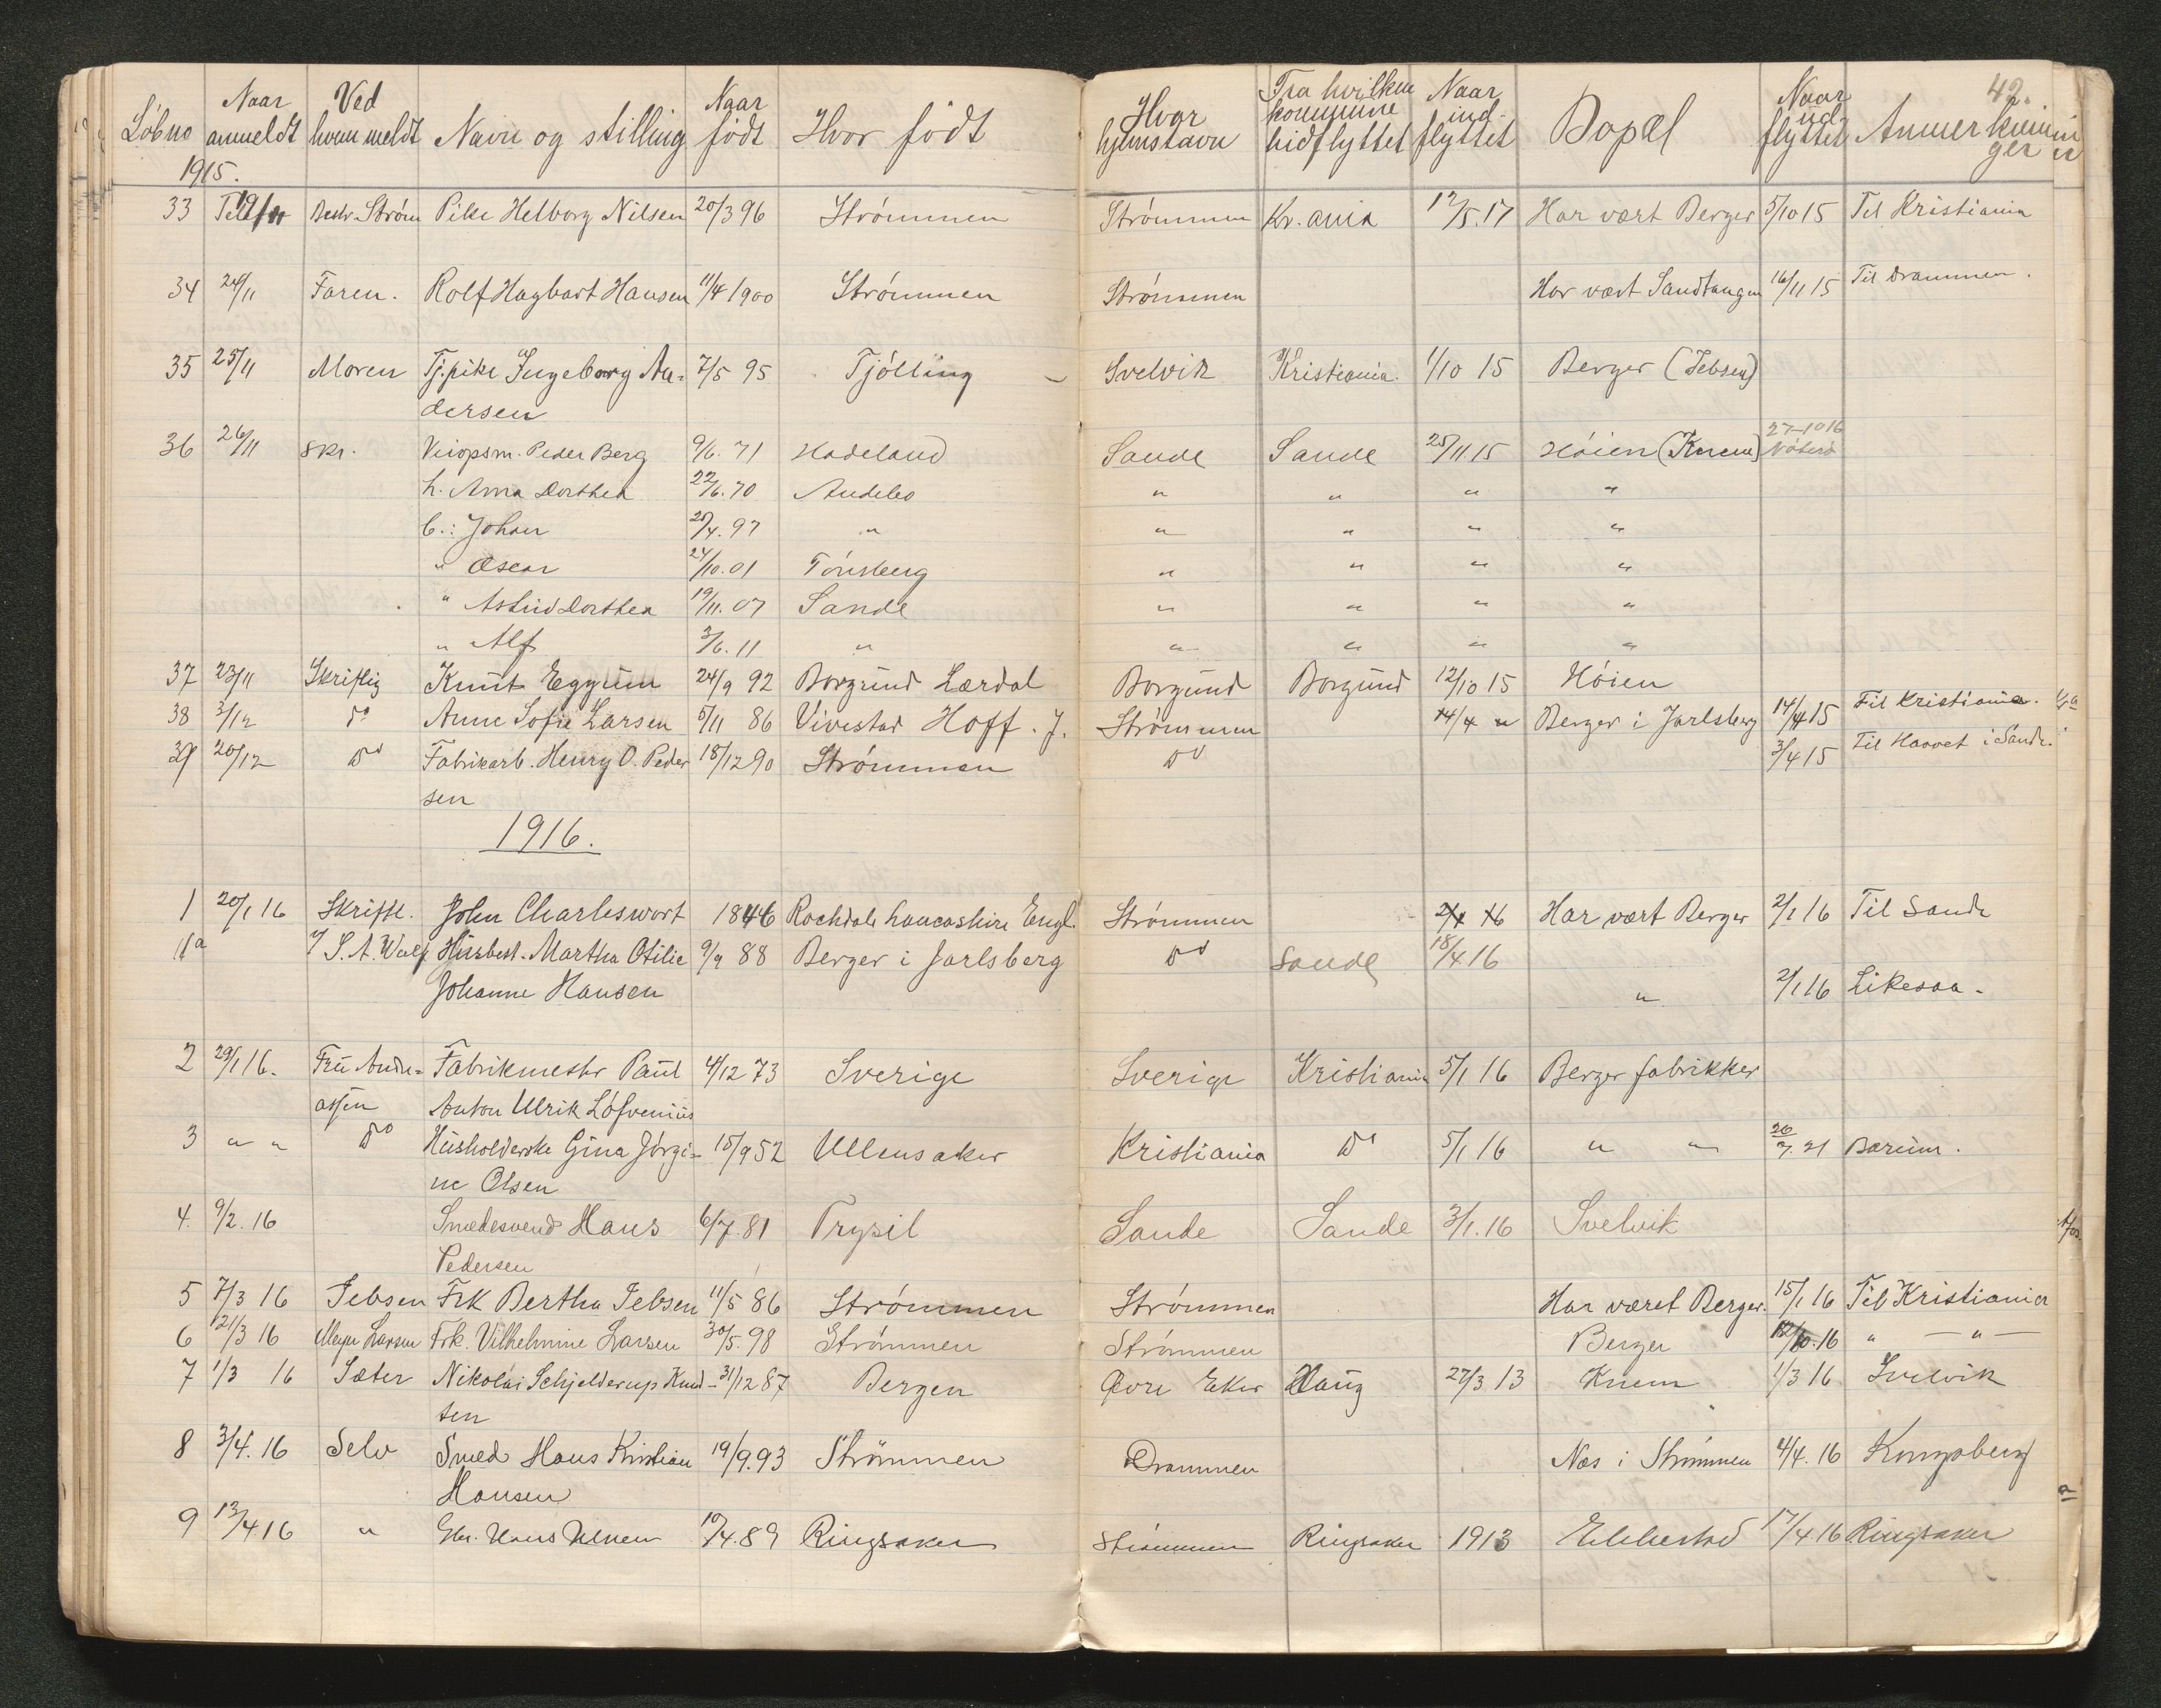 42.
Löbno Naar anmeldt Ved hvem meldt Navn og stilling Naar födt Hvor födt Hvor hjemstavn Fra hvilken kommune hidflyttet Naar ind- flyttet Bopæl Naar ud flyttet Anmerkninger
1915.
33 Strøm Pike Helborg Nilsen 20/3 96 Strømmen Strømmen Kr.ania Har vært Berger 5/10 15 Til Kristiania
34 24/11 Faren. Rolf Hagbart Hansen 11/4 1900 Strömmen Strömmen Har vært Sandtangen 16/11 15 Til Drammen.
35 25/11 Moren Tj.pike Ingeborg An- 7/5 95 Tjölling Svelvik Kristiania. 1/10 15 Berger (Jebsen)
dersen
36 26/11 Skr. Peder Berg 9/6. 71 Hadeland Sande Sande 25/11 15 Höien (Knem) 27-10 16 Nöterö
h. Anna Dorthea 22/6. 70 Andebo " " " "
b.: Johan 20/4. 97 " " " " "
" Oscar 24/10. 01 Tönsberg " " " "
" Astrid Dorthea 19/11. 07 Sande " " " "
" Alf 3/6. 11 " " " " "
37 23/11 Skriftlig Knut Eggum 24/9 92 Borgund Lærdal Borgund Borgund 12/10 15 Höien
38 3/12 do Anne Sofie Larsen 5/11 86 Vivestad Hoff. J. Strömmen 14/4 " Berger i Jarlsberg 14/4 15 Til Kristiania.
39 20/12 do Fabrikarb. Henry O. Peder 18/12 90 Strömmen do 3/4 15 Til Haavet i Sande.
sen
1916.
1 20/1 16 Skriftl. John Charleswort 1846 Rochdale Lancashire Engl. Strömmen Har vært Berger 2/1 16 Til Sande
1a Husbest. Martha Otilie 9/9 88 Berger i Jarlsberg do Sande 18/4 16
Johanne Hansen " 2/1 16 Likesaa.
2 29/1 16. Fru Andre- Fabrikmester Paul 4/12 73 Sverige Sverige Kristiania 5/1 16 Berger fabrikker
assen Anton Ulrik Löfvenius
3 " " do Husholderske Gina Jörgi- 15/9 52 Ullensaker Kristiania do 5/1 16 " " 26/7. 21 Bærum.
ne Olsen
4. 9/2. 16 Smedesvend Hans 6/7. 81 Trysil Sande Sande 3/1. 16 Svelvik
Pedersen
5 7/3 16 Jebsen Frk Bertha Jebsen 11/5 86 Strömmen Strömmen Har været Berger. 15/1 16 Til Kristiania
6 12/3 16 Larsen Frk. Vilhelmine Larsen 30/5. 98 Strömmen Strömmen Berger 16 " — " —
7 1/3 16 Sæter Nikolai Schjelderup Knud- 31/12 87 Bergen Øvre Eker Haug 27/3 13 Knem 1/3 16 Svelvik
sen
8 3/4. 16 Selv Smed Hans Kristian 19/9. 93 Strömmen Drammen Nes i Strömmen 4/4. 16 Kongsberg
Hansen
9 13/4. 16 " Hans 10/4. 89 Ringsaker Strömmen Ringsaker 1913 Ebbestad 17/4 16 Ringsaker